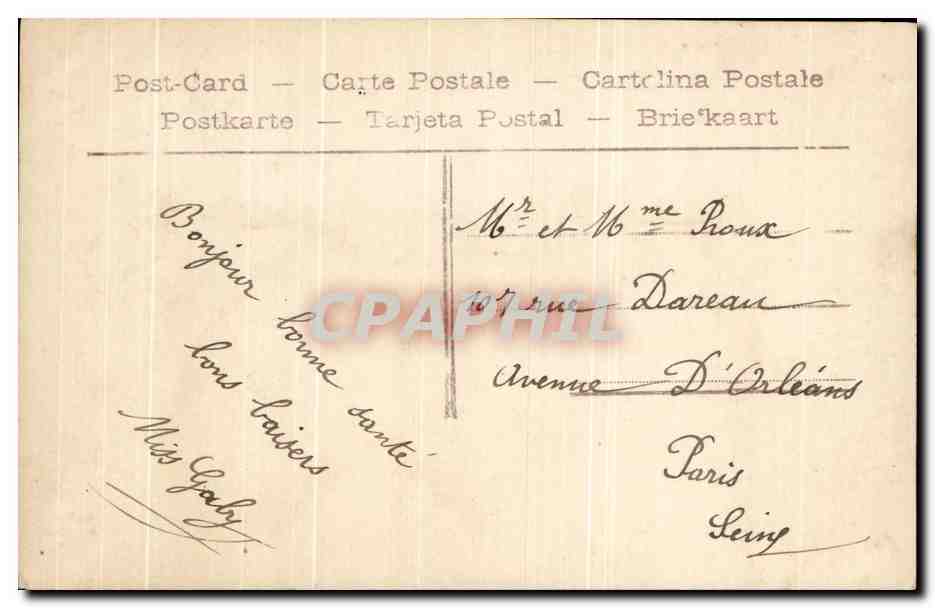 Post-Card — Carte Postale — Cartolina Postale
Postkarte — Tarjeta Postal — Briefkaart
Bonjour bonne santé
bons baisers
Miss Gaby
Mr et Mme Roux
107 rue Dareau
Avenue D'Orléans
Paris
Seine
CPAPHIL